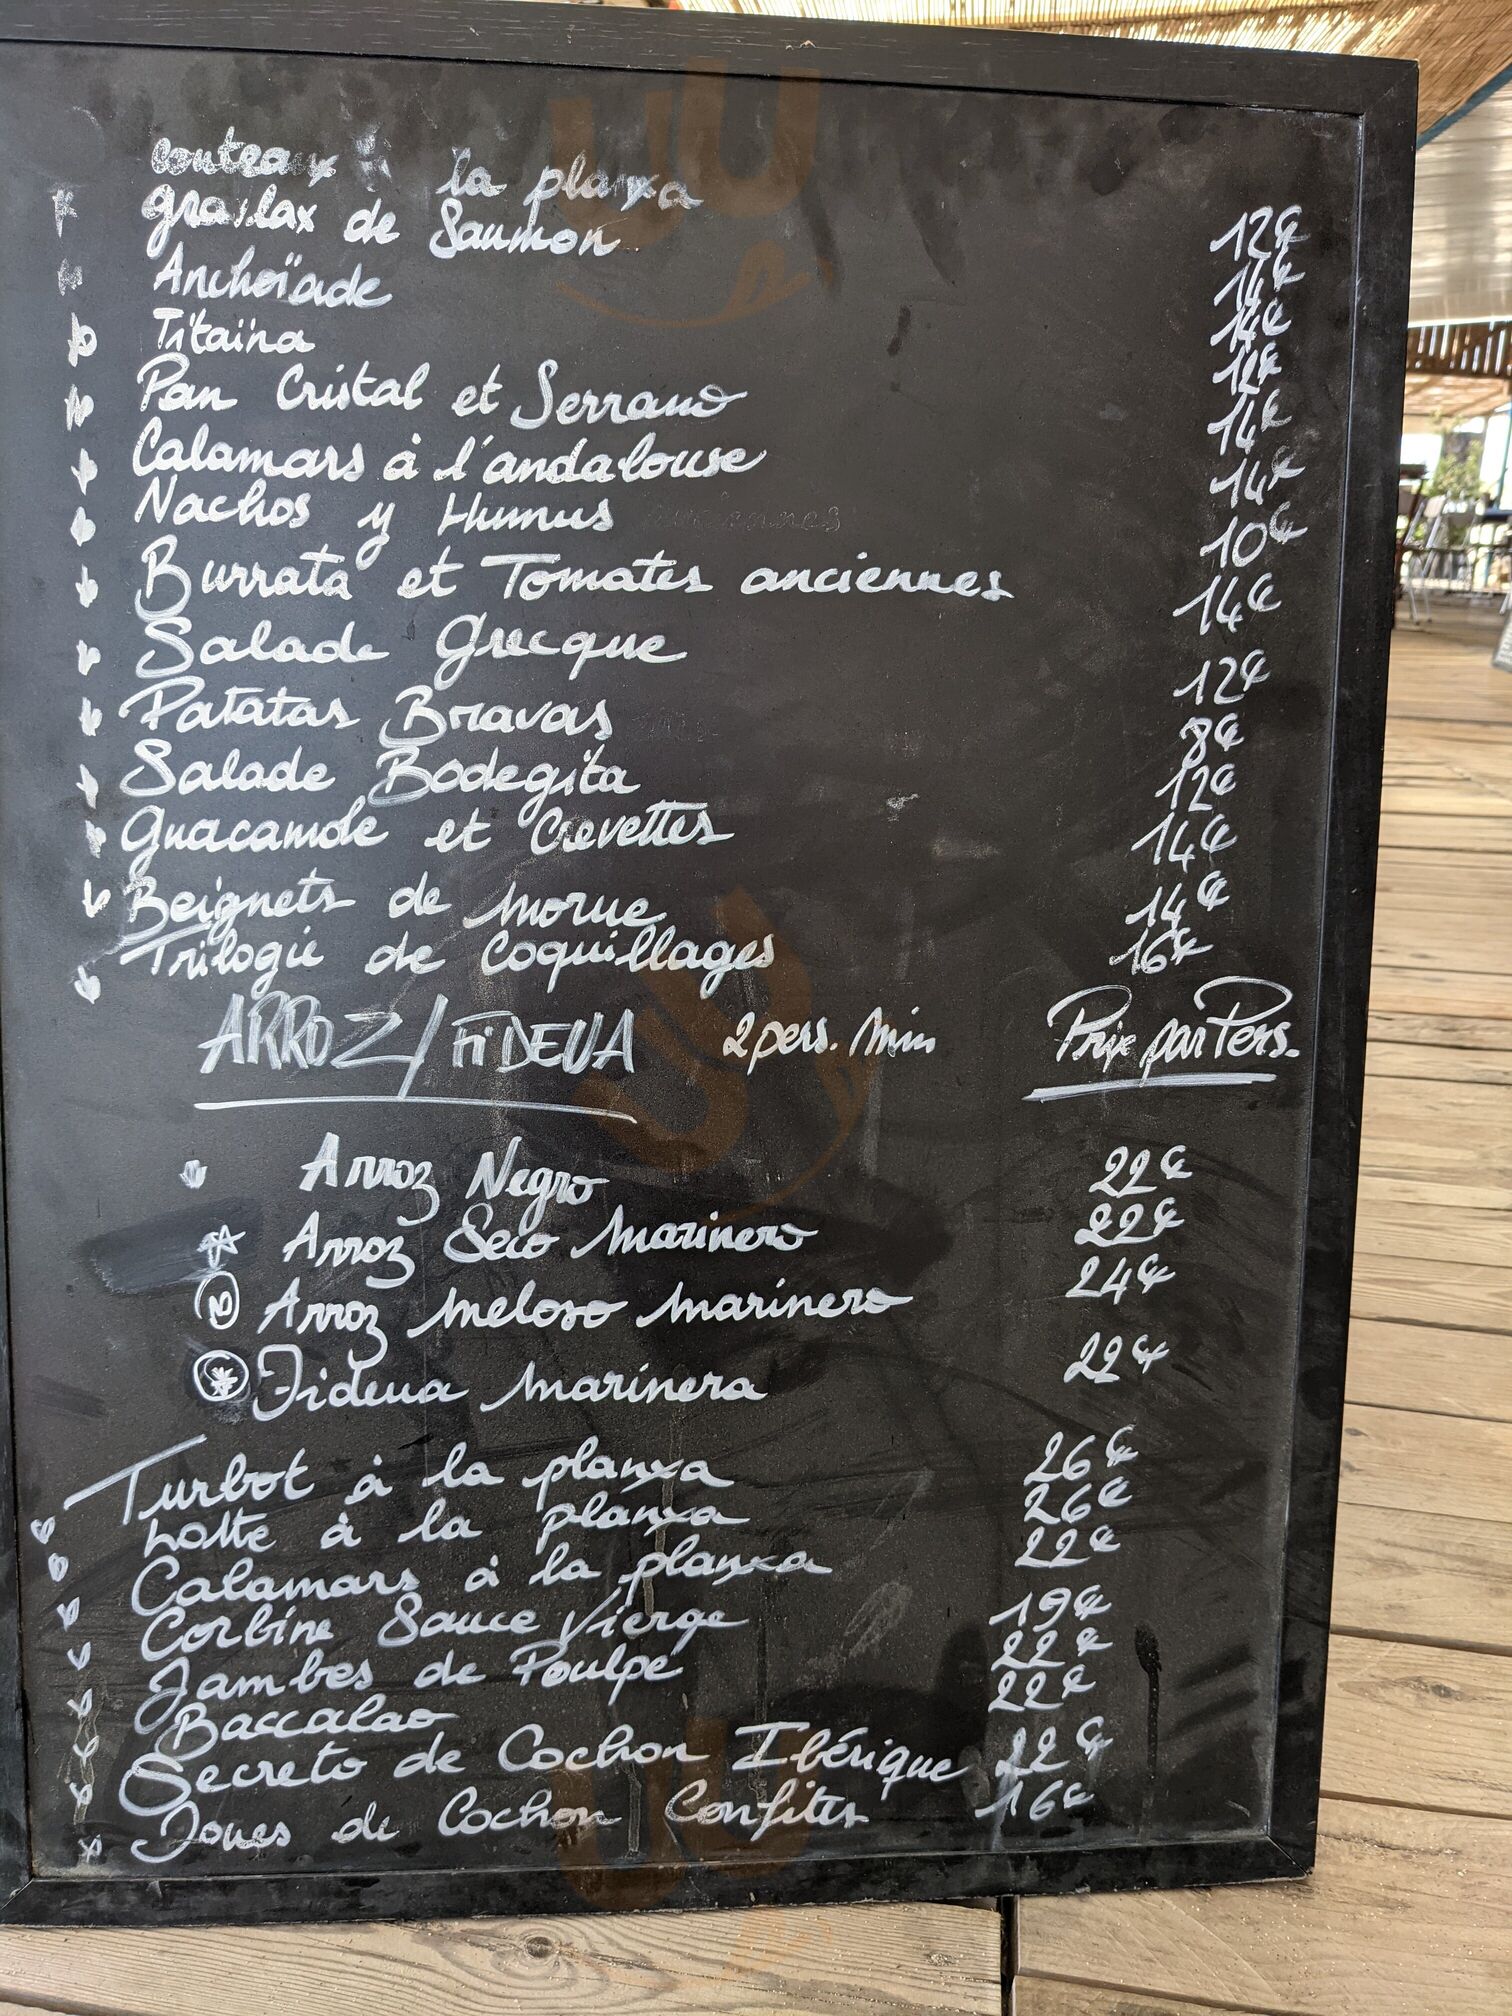 couteaux à la planxa 12€
gravlax de Saumon 14€
Anchoïade 14€
Titaïna 12€
Pan Cristal et Serrano 14€
Calamars à l'andalouse 14€
Nachos y Humus 10€
Burrata et Tomates anciennes 14€
Salade Grecque 12€
Patatas Bravas 8€
Salade Bodegita 12€
Guacamole et Crevettes 14€
Beignets de morue 14€
Trilogie de Coquillages 16€
ARROZ/FIDEUA 2 pers. Min Prix par Pers.
Arroz Negro 22€
Arroz Seco Marinero 22€
Arroz Meloso Marinero 24€
Fideua Marinera 22€
Turbot à la planxa 26€
Lotte à la planxa 26€
Calamars à la planxa 22€
Corbine Sauce Vierge 19€
Jambes de Poulpe 22€
Baccalao 22€
Secreto de Cochon Ibérique 22€
Joues de Cochon Confites 16€